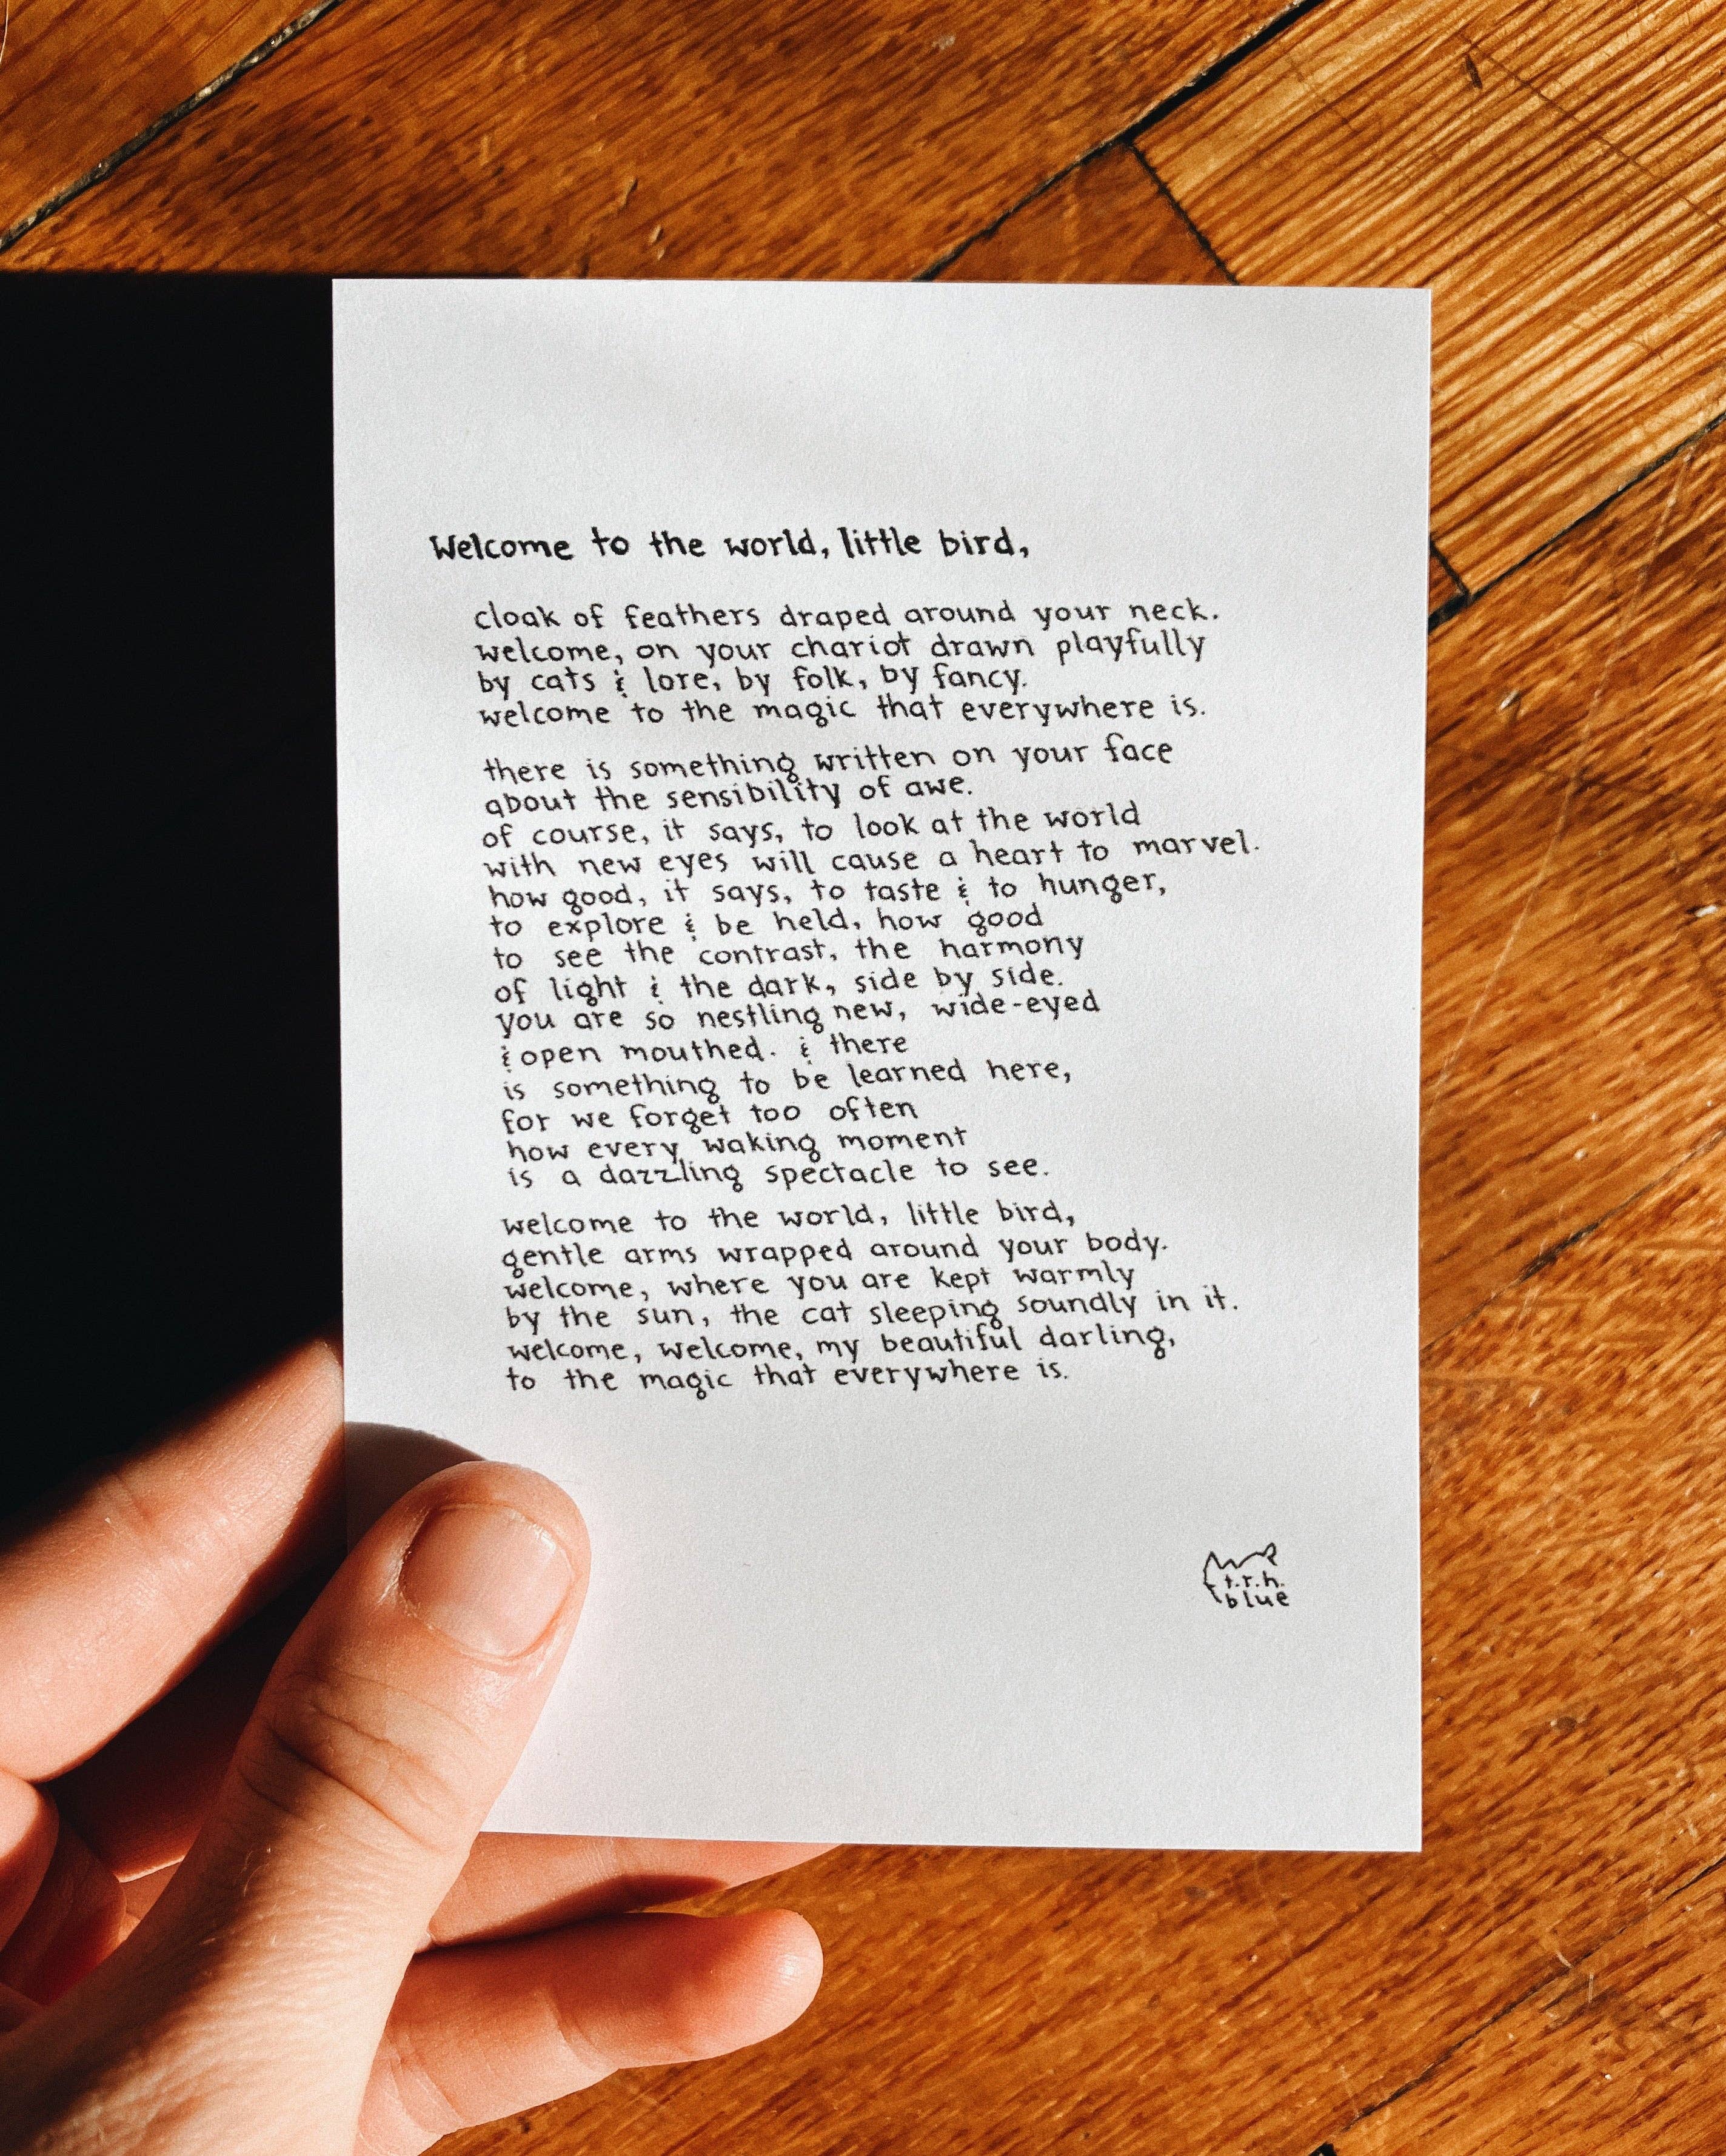 Welcome to the world, little bird,
cloak of feathers draped around your neck.
welcome, on your chariot drawn playfully
by cats & lore, by folk, by fancy.
welcome to the magic that everywhere is.
there is something written on your face
about the sensibility of awe.
of course, it says, to look at the world
with new eyes will cause a heart to marvel.
how good, it says, to taste & to hunger,
to explore & be held, how good
to see the contrast, the harmony
of light & the dark, side by side.
you are so nestling new, wide-eyed
& open mouthed. & there
is something to be learned here,
for we forget too often
how every waking moment
is a dazzling spectacle to see.
welcome to the world, little bird,
gentle arms wrapped around your body.
welcome, where you are kept warmly
by the sun, the cat sleeping soundly in it.
welcome, welcome, my beautiful darling,
to the magic that everywhere is.
t.r.h.
blue